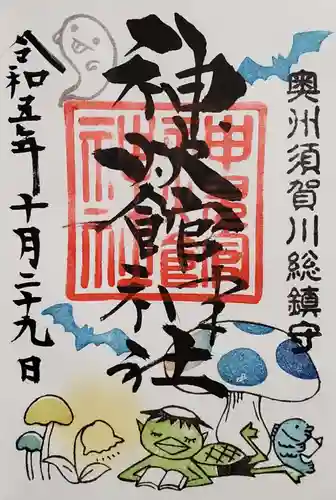 奥州須賀川総鎮守
神炊館神社
令和五年十月二十九日